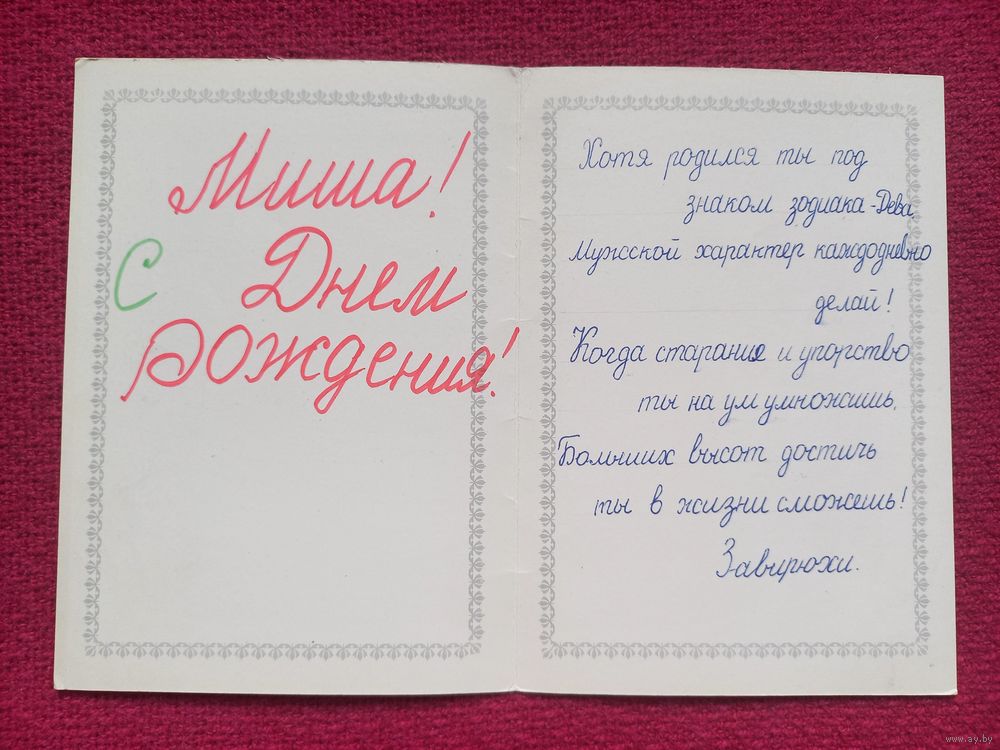 Миша!
С Днем
Рождения!
Хотя родился ты под
знаком зодиака-Дева,
Мужской характер каждодневно
делай!
Когда старание и упорство
ты на ум умножишь,
Больших высот достичь
ты в жизни сможешь!
Завирюхи.
www.ay.by